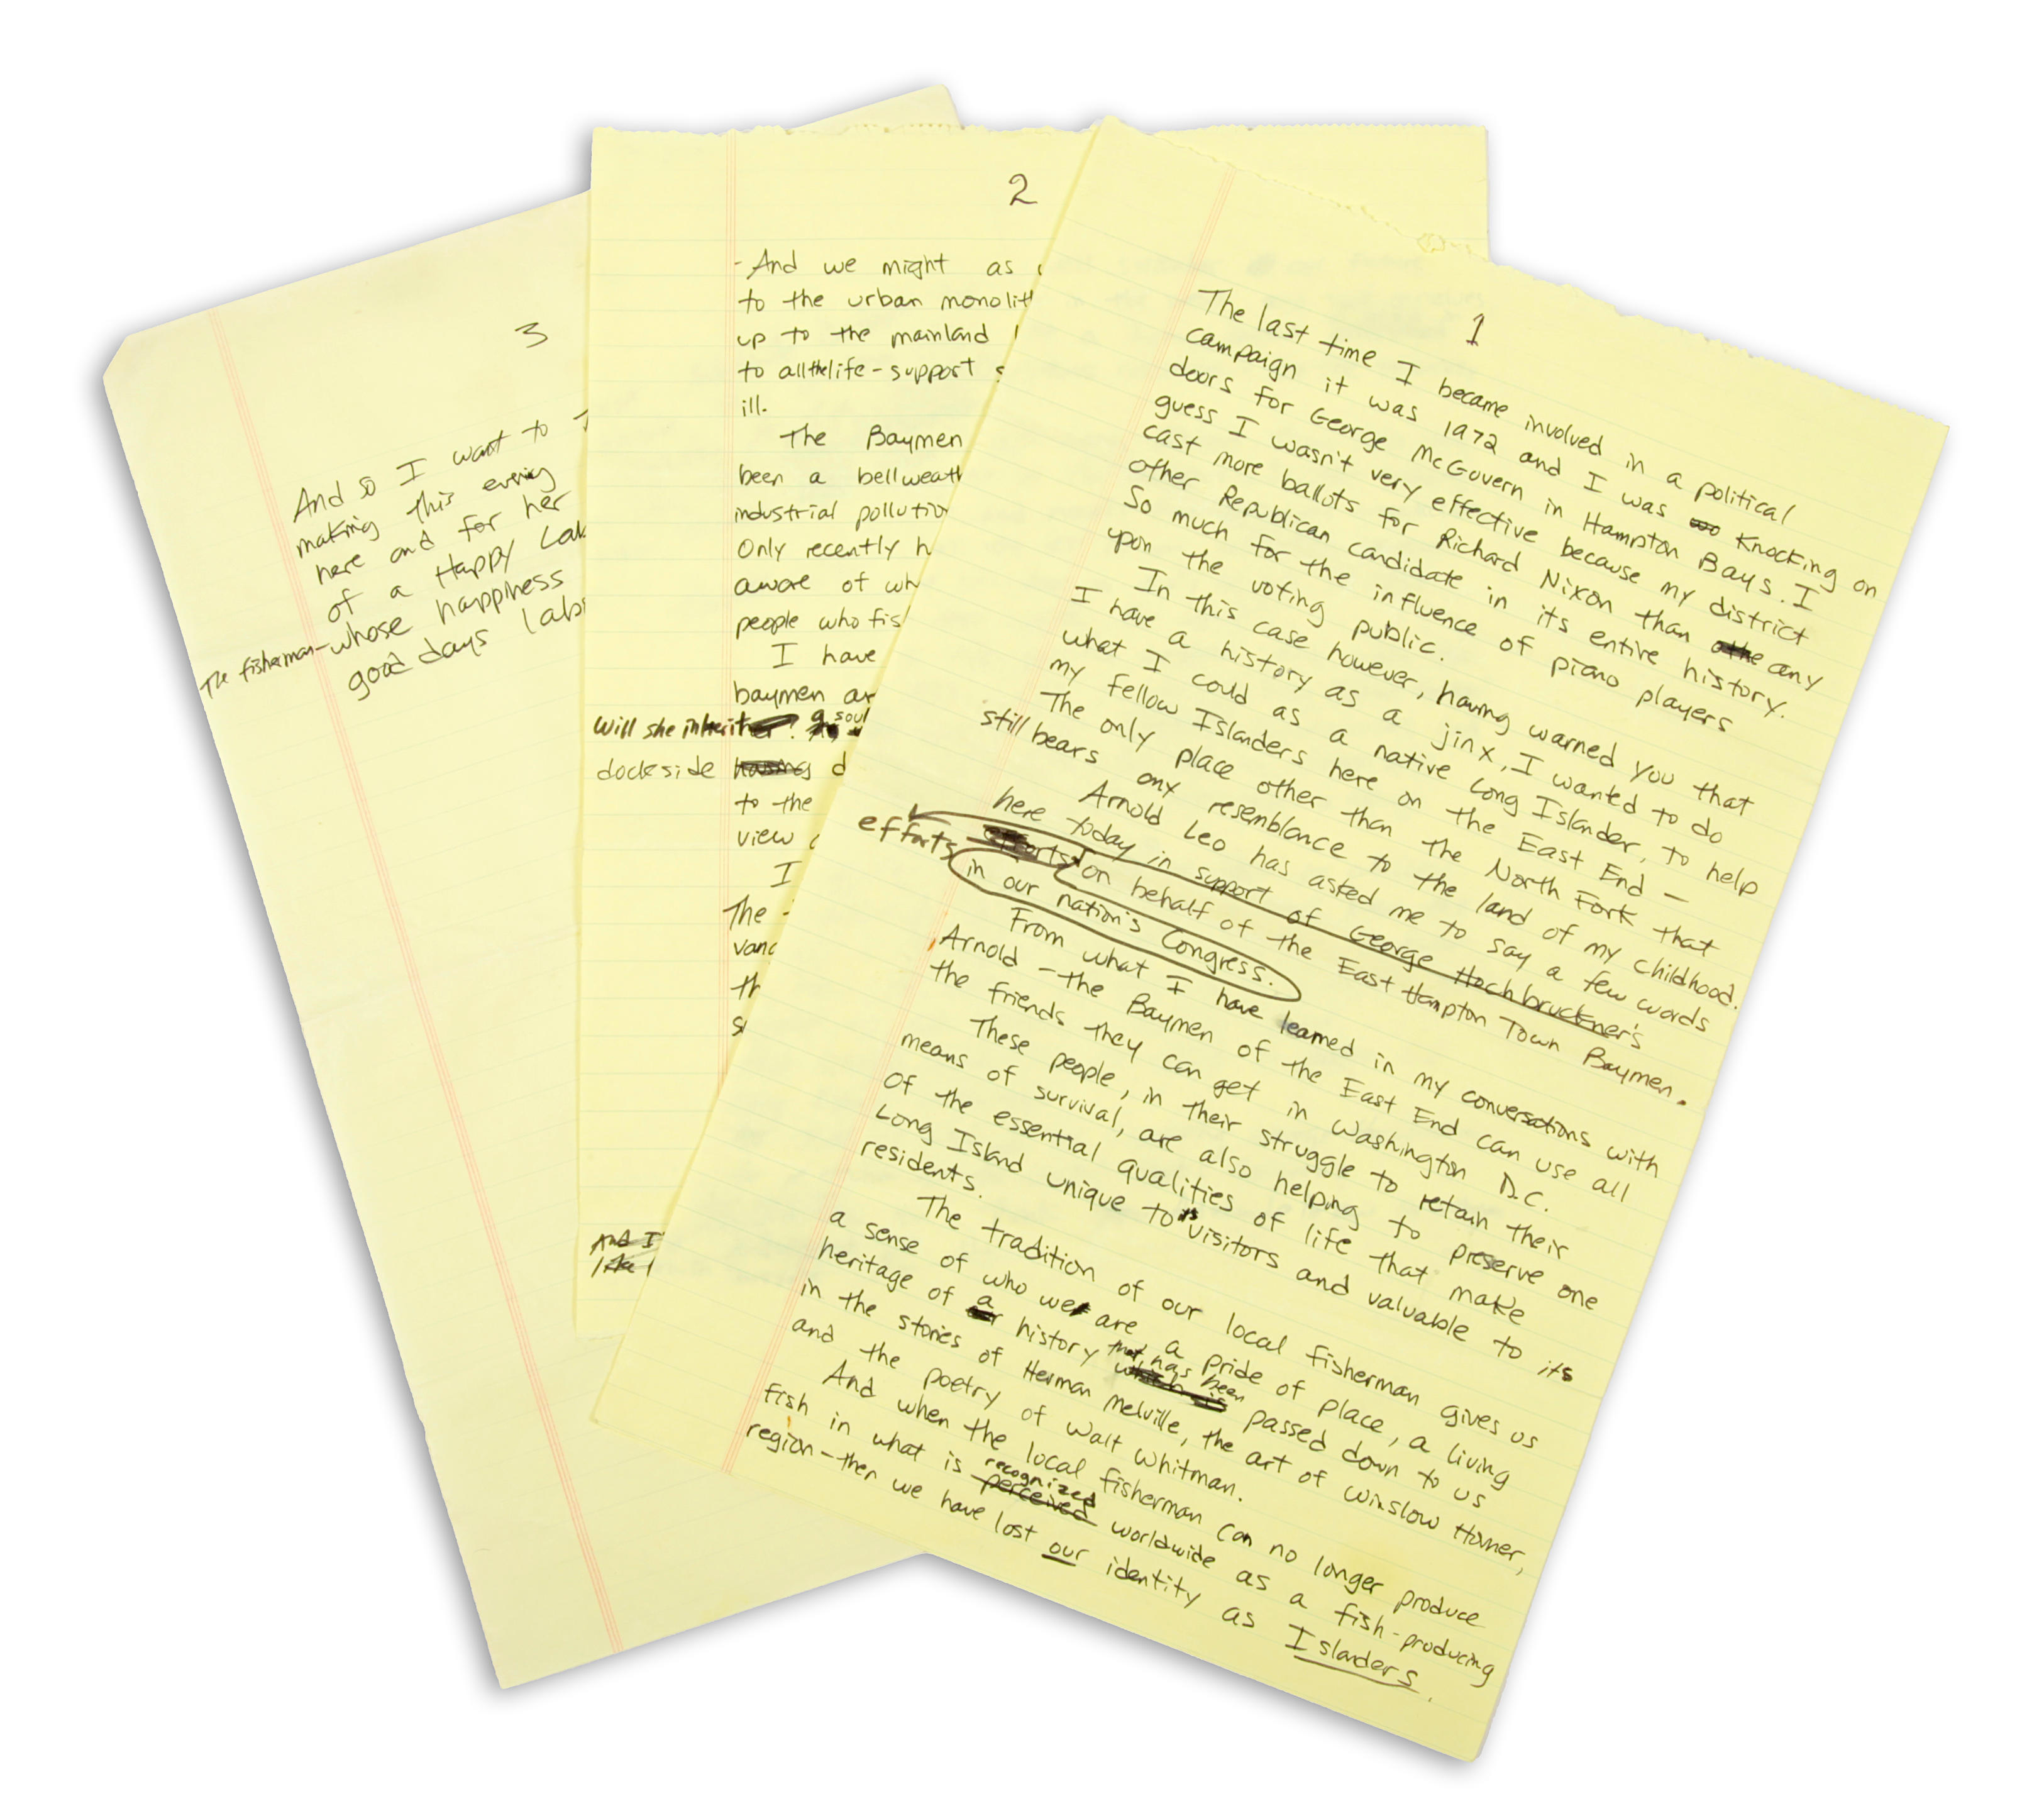 1
The last time I became involved in a political
campaign it was 1972 and I was knocking on
doors for George McGovern in Hampton Bays. I
guess I wasn't very effective because my district
cast more ballots for Richard Nixon than any
other Republican candidate in its entire history.
So much for the influence of piano players
upon the voting public.
In this case however, having warned you that
I have a history as a jinx, I wanted to do
what I could as a native Long Islander, to help
my fellow Islanders here on the East End —
The only place other than the North Fork that
still bears any resemblance to the land of my childhood.
Arnold Leo has asked me to say a few words
here today in support of George Hochbruckner's
efforts efforts on behalf of the East Hampton Town Baymen.
in our nation's Congress.
From what I have learned in my conversations with
Arnold - the Baymen of the East End can use all
the friends they can get in Washington D.C.
These people, in their struggle to retain their
means of survival, are also helping to preserve one
of the essential qualities of life that make
Long Island unique to its visitors and valuable to its
residents.
The tradition of our local fisherman gives us
a sense of who we are, a pride of place, a living
heritage of a history that has been which is passed down to us
in the stories of Herman Melville, the art of Winslow Homer,
and the poetry of Walt Whitman.
And when the local fisherman can no longer produce
fish in what is recognized perceived worldwide as a fish-producing
region - then we have lost our identity as Islanders.
2
- And we might as
to the urban monolit
up to the mainland
to all the life-support s
ill.
The Baymen
been a bellweath
industrial pollution
Only recently h
aware of wh
people who fis
I have
baymen ar
Will she inherit
dockside housing d
to the
view
I
The -
vanc
th
s
And I
like
3
And so I want to
making this evening
here and for her
of a Happy Lab
The fisherman - whose happiness
good days labo